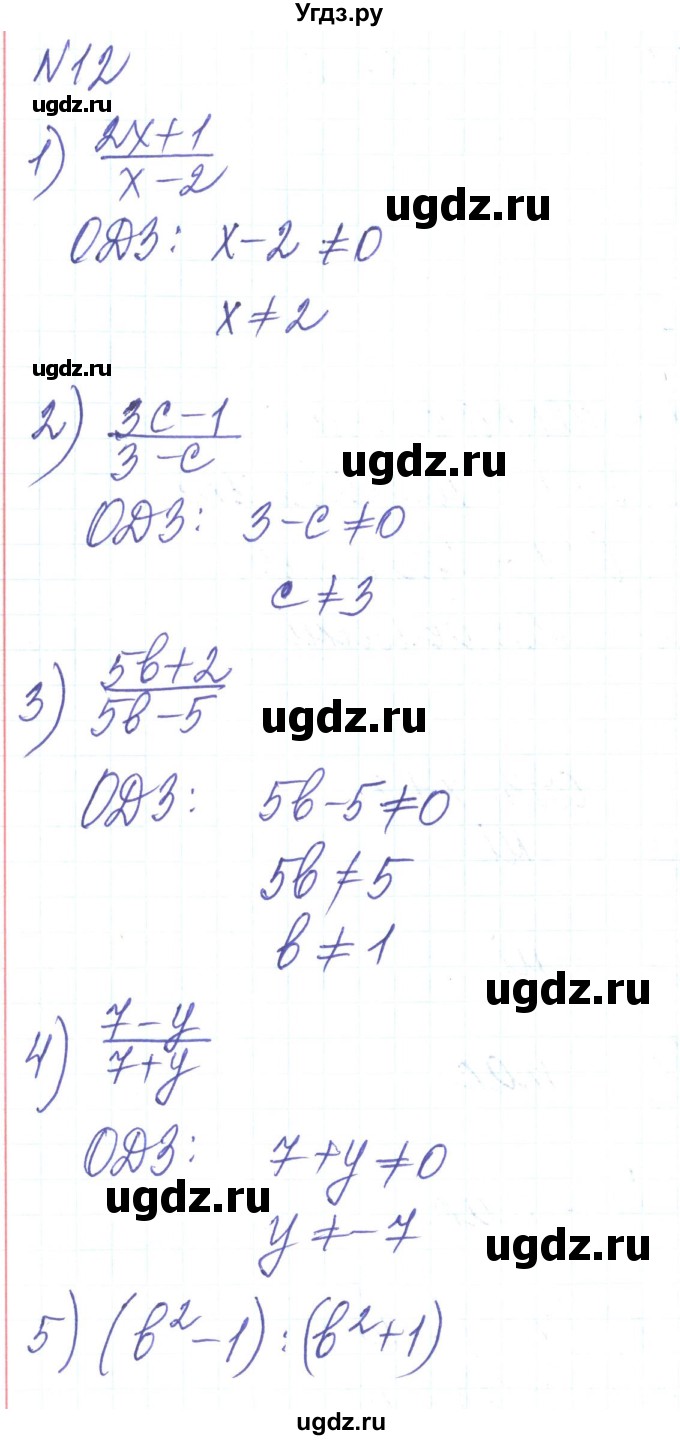 Угдз.ру
N12
ugdz.ru
1) (2x+1)/(x-2)
ugdz.ru
ОДЗ: x-2≠0
x≠2
ugdz.ru
2) (3c-1)/(3-c)
ugdz.ru
ОДЗ: 3-c≠0
c≠3
3) (5b+2)/(5b-5)
ugdz.ru
ОДЗ: 5b-5≠0
5b≠5
b≠1
ugdz.ru
4) (7-y)/(7+y)
ОДЗ: 7+y≠0
ugdz.ru
y≠-7
ugdz.ru
5) (b²-1):(b²+1)
ugdz.ru